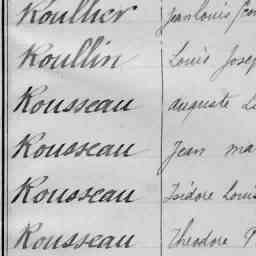 Roullier Jean Louis
Roullin Louis Josep
Rousseau Auguste
Rousseau Jean Ma
Rousseau Isidore Louis
Rousseau Théodore